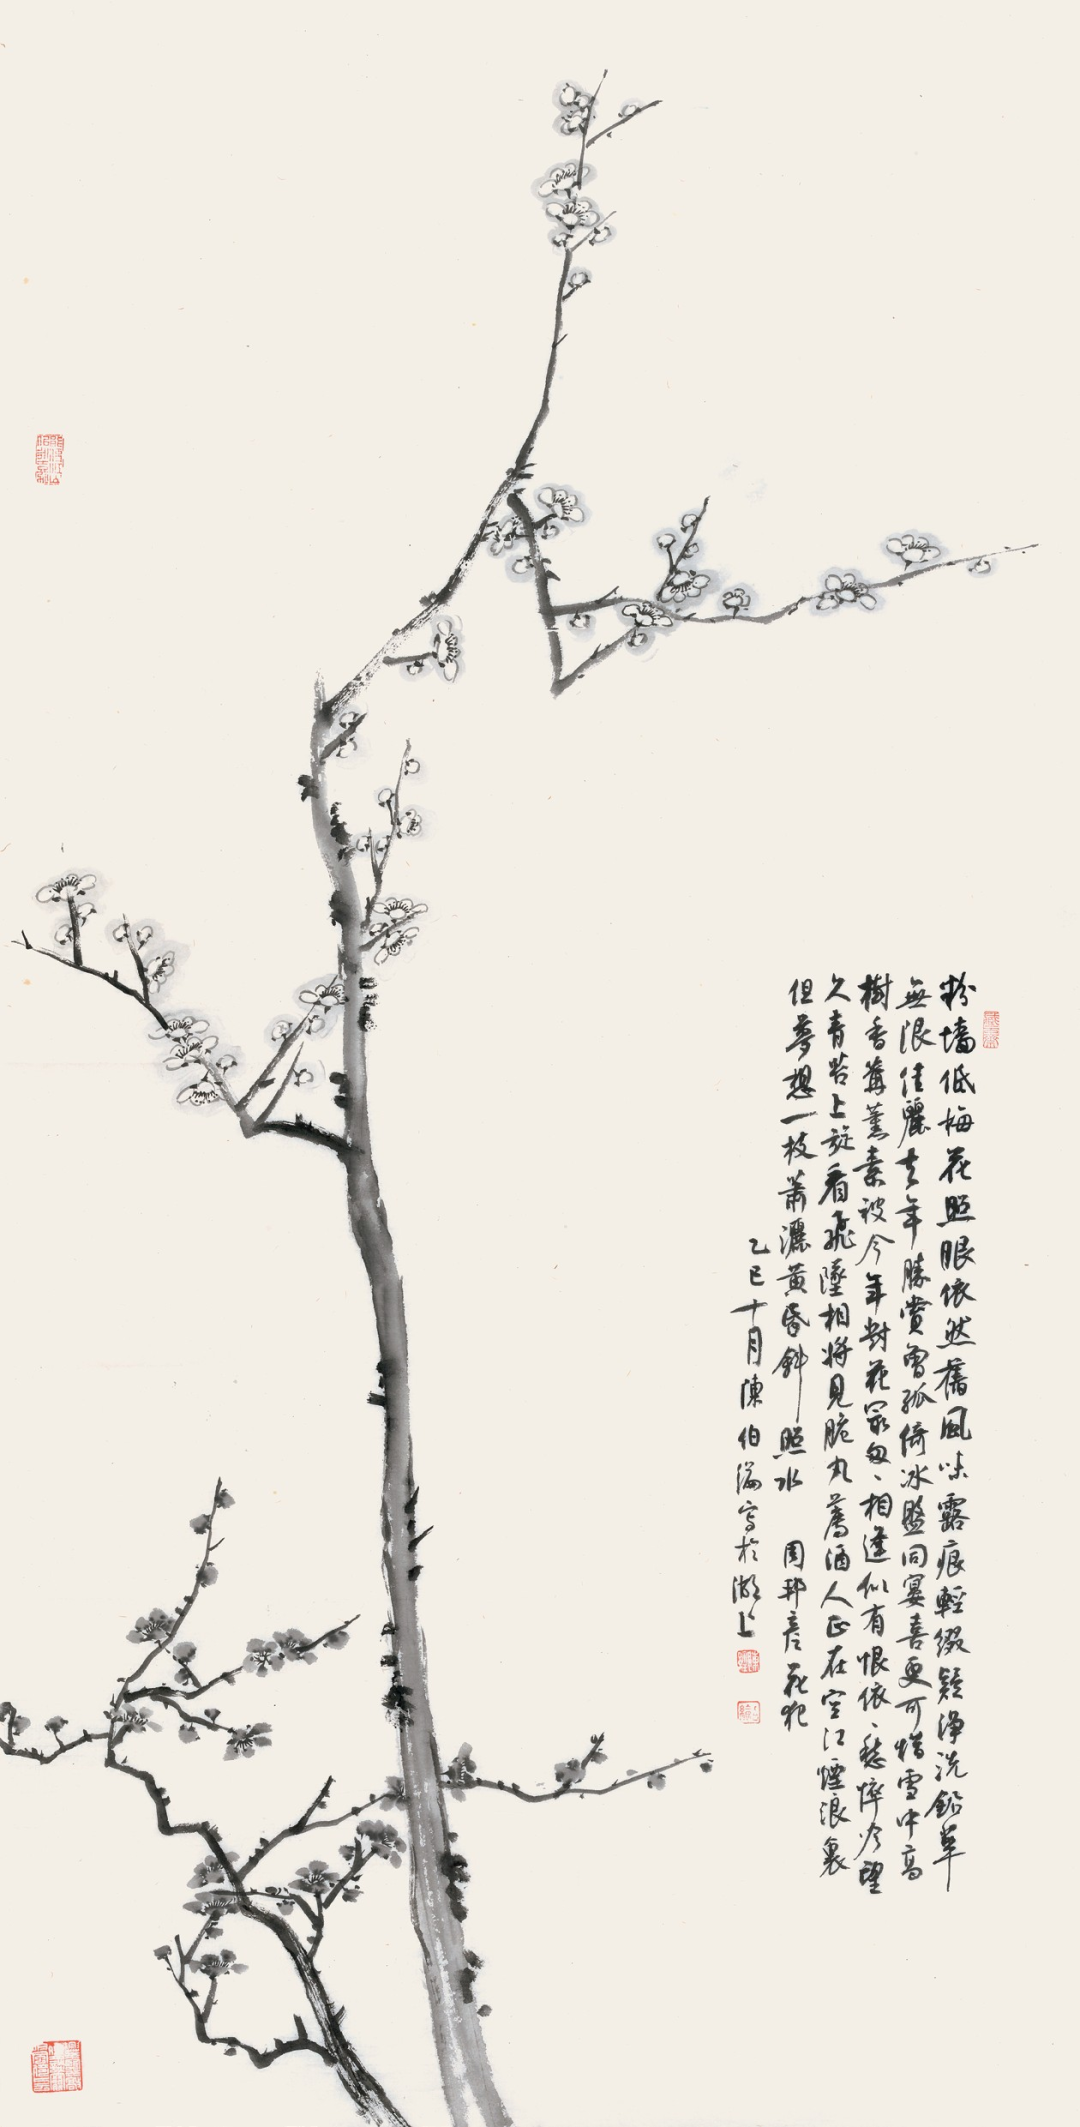 粉墻低梅花照眼依然舊風味露痕輕綴疑淨洗鉛華
無限佳麗去年勝賞曾孤倚冰盤同宴喜更可惜雪中高
樹香篝薰素被今年對花最匆、相逢似有恨依、愁悴吟望
久青苔上旋看飛墜相將見脆丸薦酒人正在空江煙浪裏
但夢想一枝蕭灑黃昏斜照水 周邦彥花犯
乙巳十月陳伯寫於湖上